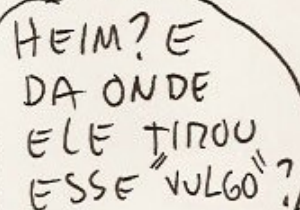 HEIM? E
DA ONDE
ELE TIROU
ESSE "VULGO"?